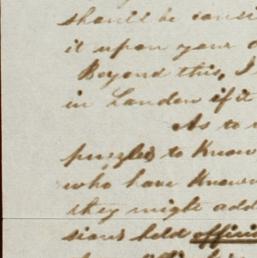 should be consi
it upon your
Beyond this, I
in London if it
As to
puzzled to know
who have known
they might add
sions held offici